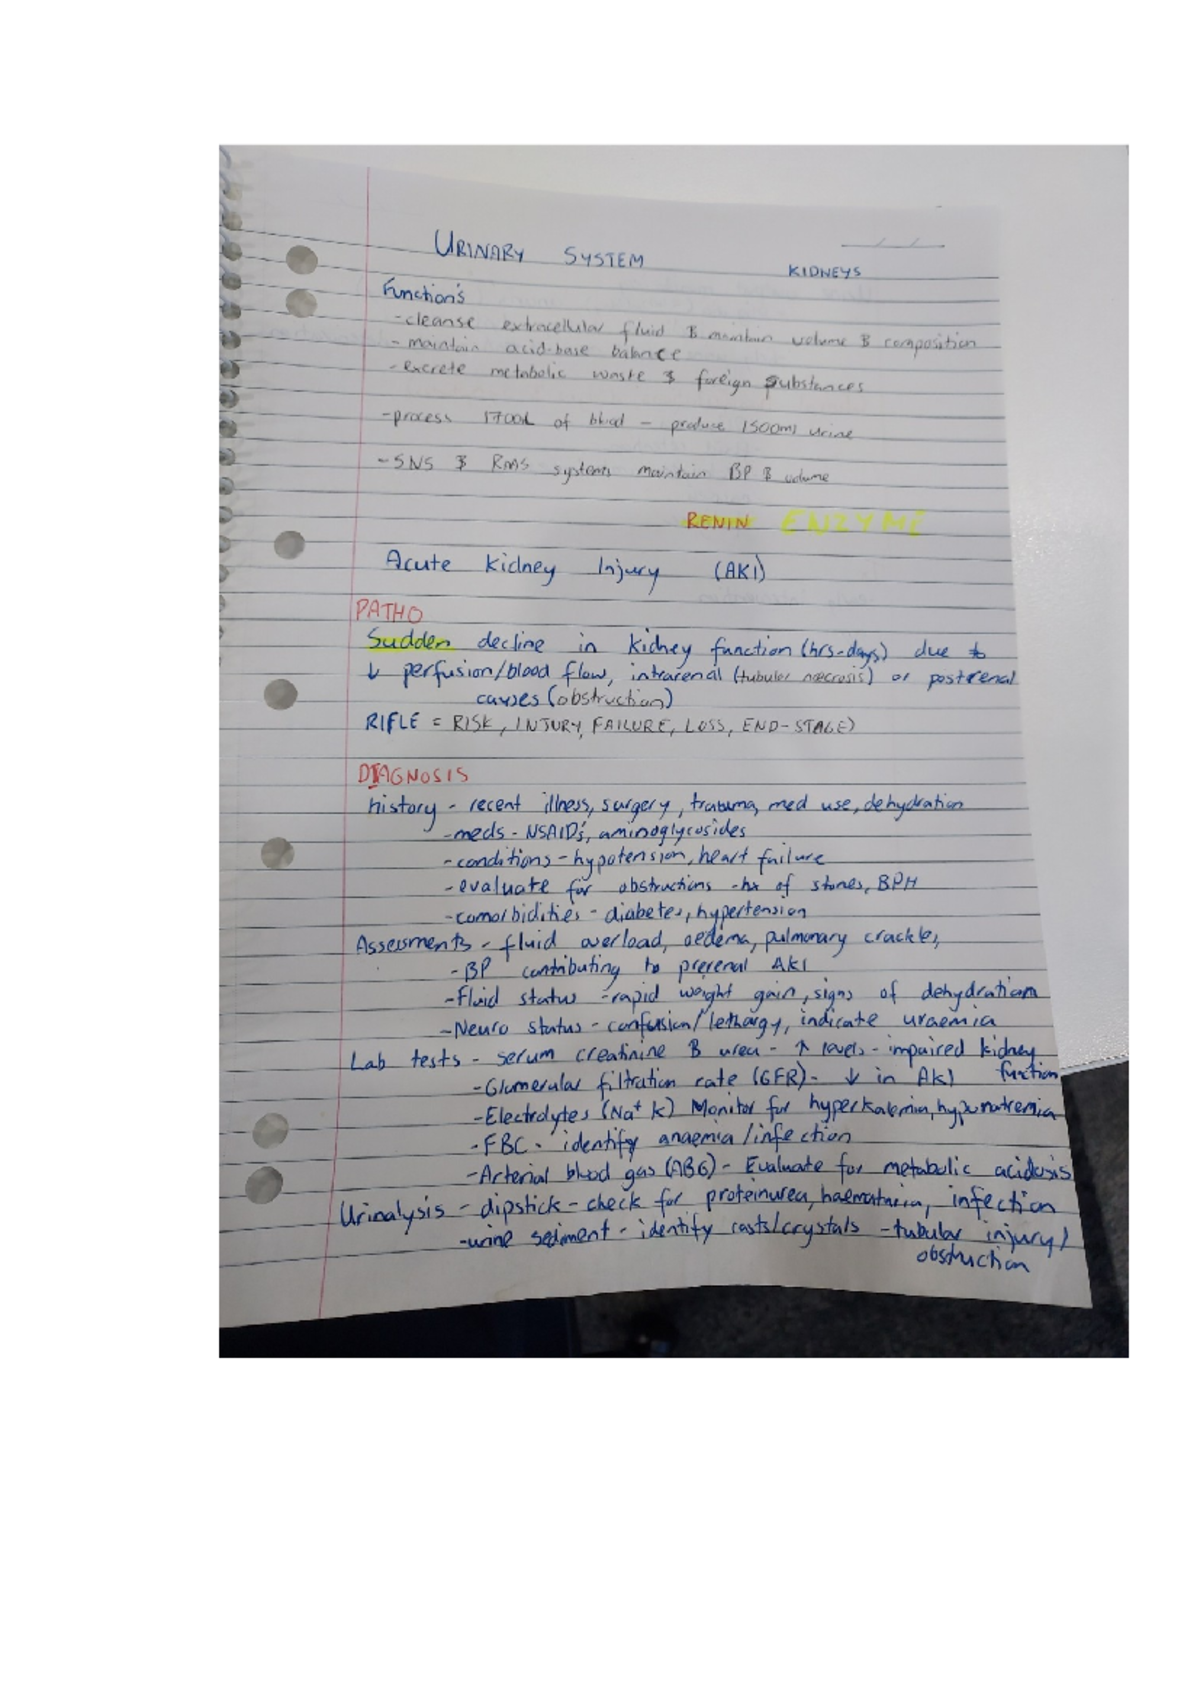 URINARY SYSTEM
KIDNEYS
Function's
-cleanse extracellular fluid & maintain volume & composition
- maintain acid-base balance
-excrete metabolic waste & foreign substances
-process 1700L of blood - produce 1500ml urine
-SNS & RAAS systems maintain BP & volume
RENIN ENZYME
Acute Kidney Injury (AKI)
PATHO
Sudden decline in kidney function (hrs-days) due to
↓ perfusion/blood flow, intrarenal (tubular necrosis) or postrenal
causes (obstruction)
RIFLE = RISK, INJURY, FAILURE, LOSS, END-STAGE)
DIAGNOSIS
history - recent illness, surgery, trauma, med use, dehydration
-meds - NSAID's, aminoglycosides
-conditions - hypotension, heart failure
-evaluate for obstructions -hx of stones, BPH
-comorbidities - diabetes, hypertension
Assessments - fluid overload, oedema, pulmonary crackles,
-BP contributing to prerenal AKI
-Fluid status -rapid weight gain, signs of dehydration
-Neuro status - confusion/lethargy, indicate uraemia
Lab tests - serum creatinine & urea - ↑ levels - impaired kidney
function
-Glomerular filtration rate (GFR) - ↓ in AKI
-Electrolytes (Na+ K) Monitor for hyperkalemia, hyponatremia
-FBC - identify anaemia/infection
-Arterial blood gas (ABG) - Evaluate for metabolic acidosis
Urinalysis - dipstick - check for proteinurea, haematuria, infection
-urine sediment - identify casts/crystals -tubular injury/
obstruction